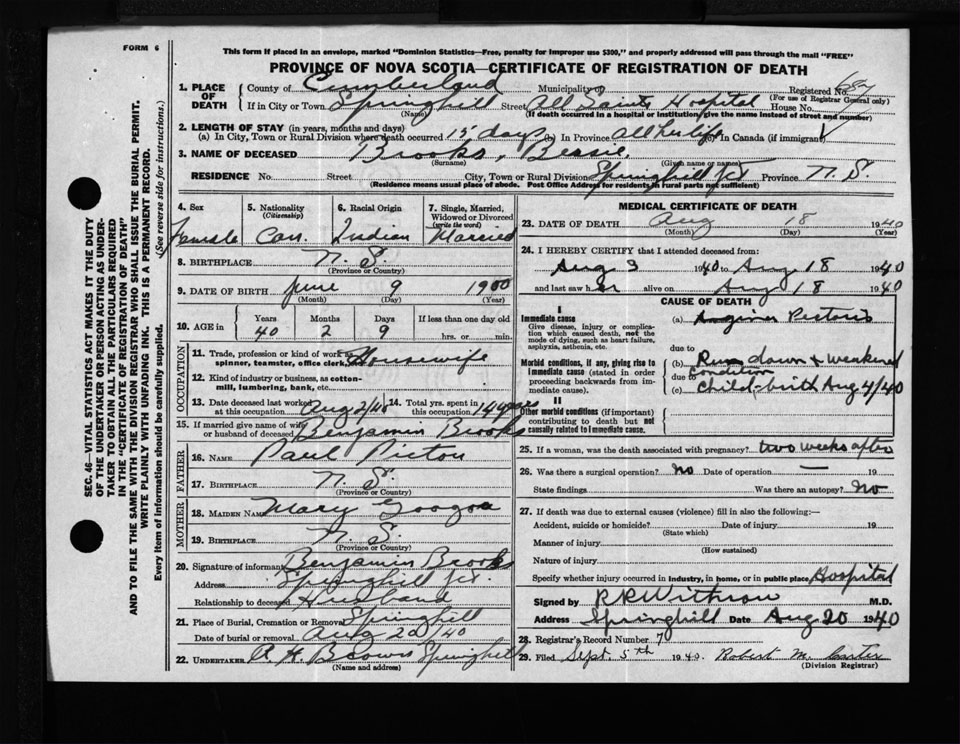 FORM 6
This form if placed in an envelope, marked "Dominion Statistics—Free, penalty for improper use $300," and properly addressed will pass through the mail "FREE"
PROVINCE OF NOVA SCOTIA—CERTIFICATE OF REGISTRATION OF DEATH
SEC. 46—VITAL STATISTICS ACT MAKES IT THE DUTY
OF THE UNDERTAKER OR PERSON ACTING AS UNDER-
TAKER TO OBTAIN ALL THE PARTICULARS REQUIRED
IN THE "CERTIFICATE OF REGISTRATION OF DEATH"
AND TO FILE THE SAME WITH THE DIVISION REGISTRAR WHO SHALL ISSUE THE BURIAL PERMIT.
WRITE PLAINLY WITH UNFADING INK. THIS IS A PERMANENT RECORD.
Every item of information should be carefully supplied. (See reverse side for instructions.)
1. PLACE OF DEATH County of Cumberland Municipality of Registered No.
(For use of Registrar General only)
If in City or Town Springhill Street All Saints Hospital House No.
(Name) (If death occurred in a hospital or institution, give the name instead of street and number)
2. LENGTH OF STAY (in years, months and days)
(a) In City, Town or Rural Division where death occurred 15 days (b) In Province all her life (c) In Canada (if immigrant)
3. NAME OF DECEASED Brooks, Bessie
(Surname) (Given name or names)
RESIDENCE No. Street City, Town or Rural Division Springhill Jct Province N. S.
(Residence means usual place of abode. Post Office Address for residents in rural parts not sufficient)
4. Sex 5. Nationality (Citizenship) 6. Racial Origin 7. Single, Married, Widowed or Divorced (write the word)
Female Can. Indian Married
8. BIRTHPLACE N. S.
(Province or Country)
9. DATE OF BIRTH June 9 1900
(Month) (Day) (Year)
10. AGE in Years Months Days If less than one day old
40 2 9 hrs. or min.
OCCUPATION
11. Trade, profession or kind of work as spinner, teamster, office clerk, etc. Housewife
12. Kind of industry or business, as cotton-mill, lumbering, bank, etc.
13. Date deceased last worked at this occupation Aug 2/40 14. Total yrs. spent in this occupation 14 years
15. If married give name of wife or husband of deceased Benjamin Brooks
FATHER
16. NAME Paul Pictou
17. BIRTHPLACE N. S.
(Province or Country)
MOTHER
18. MAIDEN NAME Mary Googoo
19. BIRTHPLACE N. S.
(Province or Country)
20. Signature of informant Benjamin Brooks
Address Springhill Jct.
Relationship to deceased Husband
21. Place of Burial, Cremation or Removal Springhill
Date of burial or removal Aug 20/40
22. UNDERTAKER A. H. Brown Springhill
(Name and address)
MEDICAL CERTIFICATE OF DEATH
23. DATE OF DEATH Aug 18 1940
(Month) (Day) (Year)
24. I HEREBY CERTIFY that I attended deceased from:
Aug 3 1940 to Aug 18 1940
and last saw her alive on Aug 18 1940
CAUSE OF DEATH
I
Immediate cause
Give disease, injury or complication which caused death, not the mode of dying, such as heart failure, asphyxia, asthenia, etc.
(a) Angina Pectoris
due to
Morbid conditions, if any, giving rise to immediate cause (stated in order proceeding backwards from immediate cause).
(b) Run down & weakened
due to condition
(c) Child-birth Aug 4/40
II
Other morbid conditions (if important) contributing to death but not causally related to immediate cause.
25. If a woman, was the death associated with pregnancy? two weeks after
26. Was there a surgical operation? No Date of operation — 19
State findings Was there an autopsy? No
27. If death was due to external causes (violence) fill in also the following:—
Accident, suicide or homicide? Date of injury 19
(State which)
Manner of injury
(How sustained)
Nature of injury
Specify whether injury occurred in industry, in home, or in public place Hospital
Signed by R R Withrow M.D.
Address Springhill Date Aug 20 1940
28. Registrar's Record Number 7
29. Filed Sept. 5th 1940. Robert M. Carter
(Division Registrar)